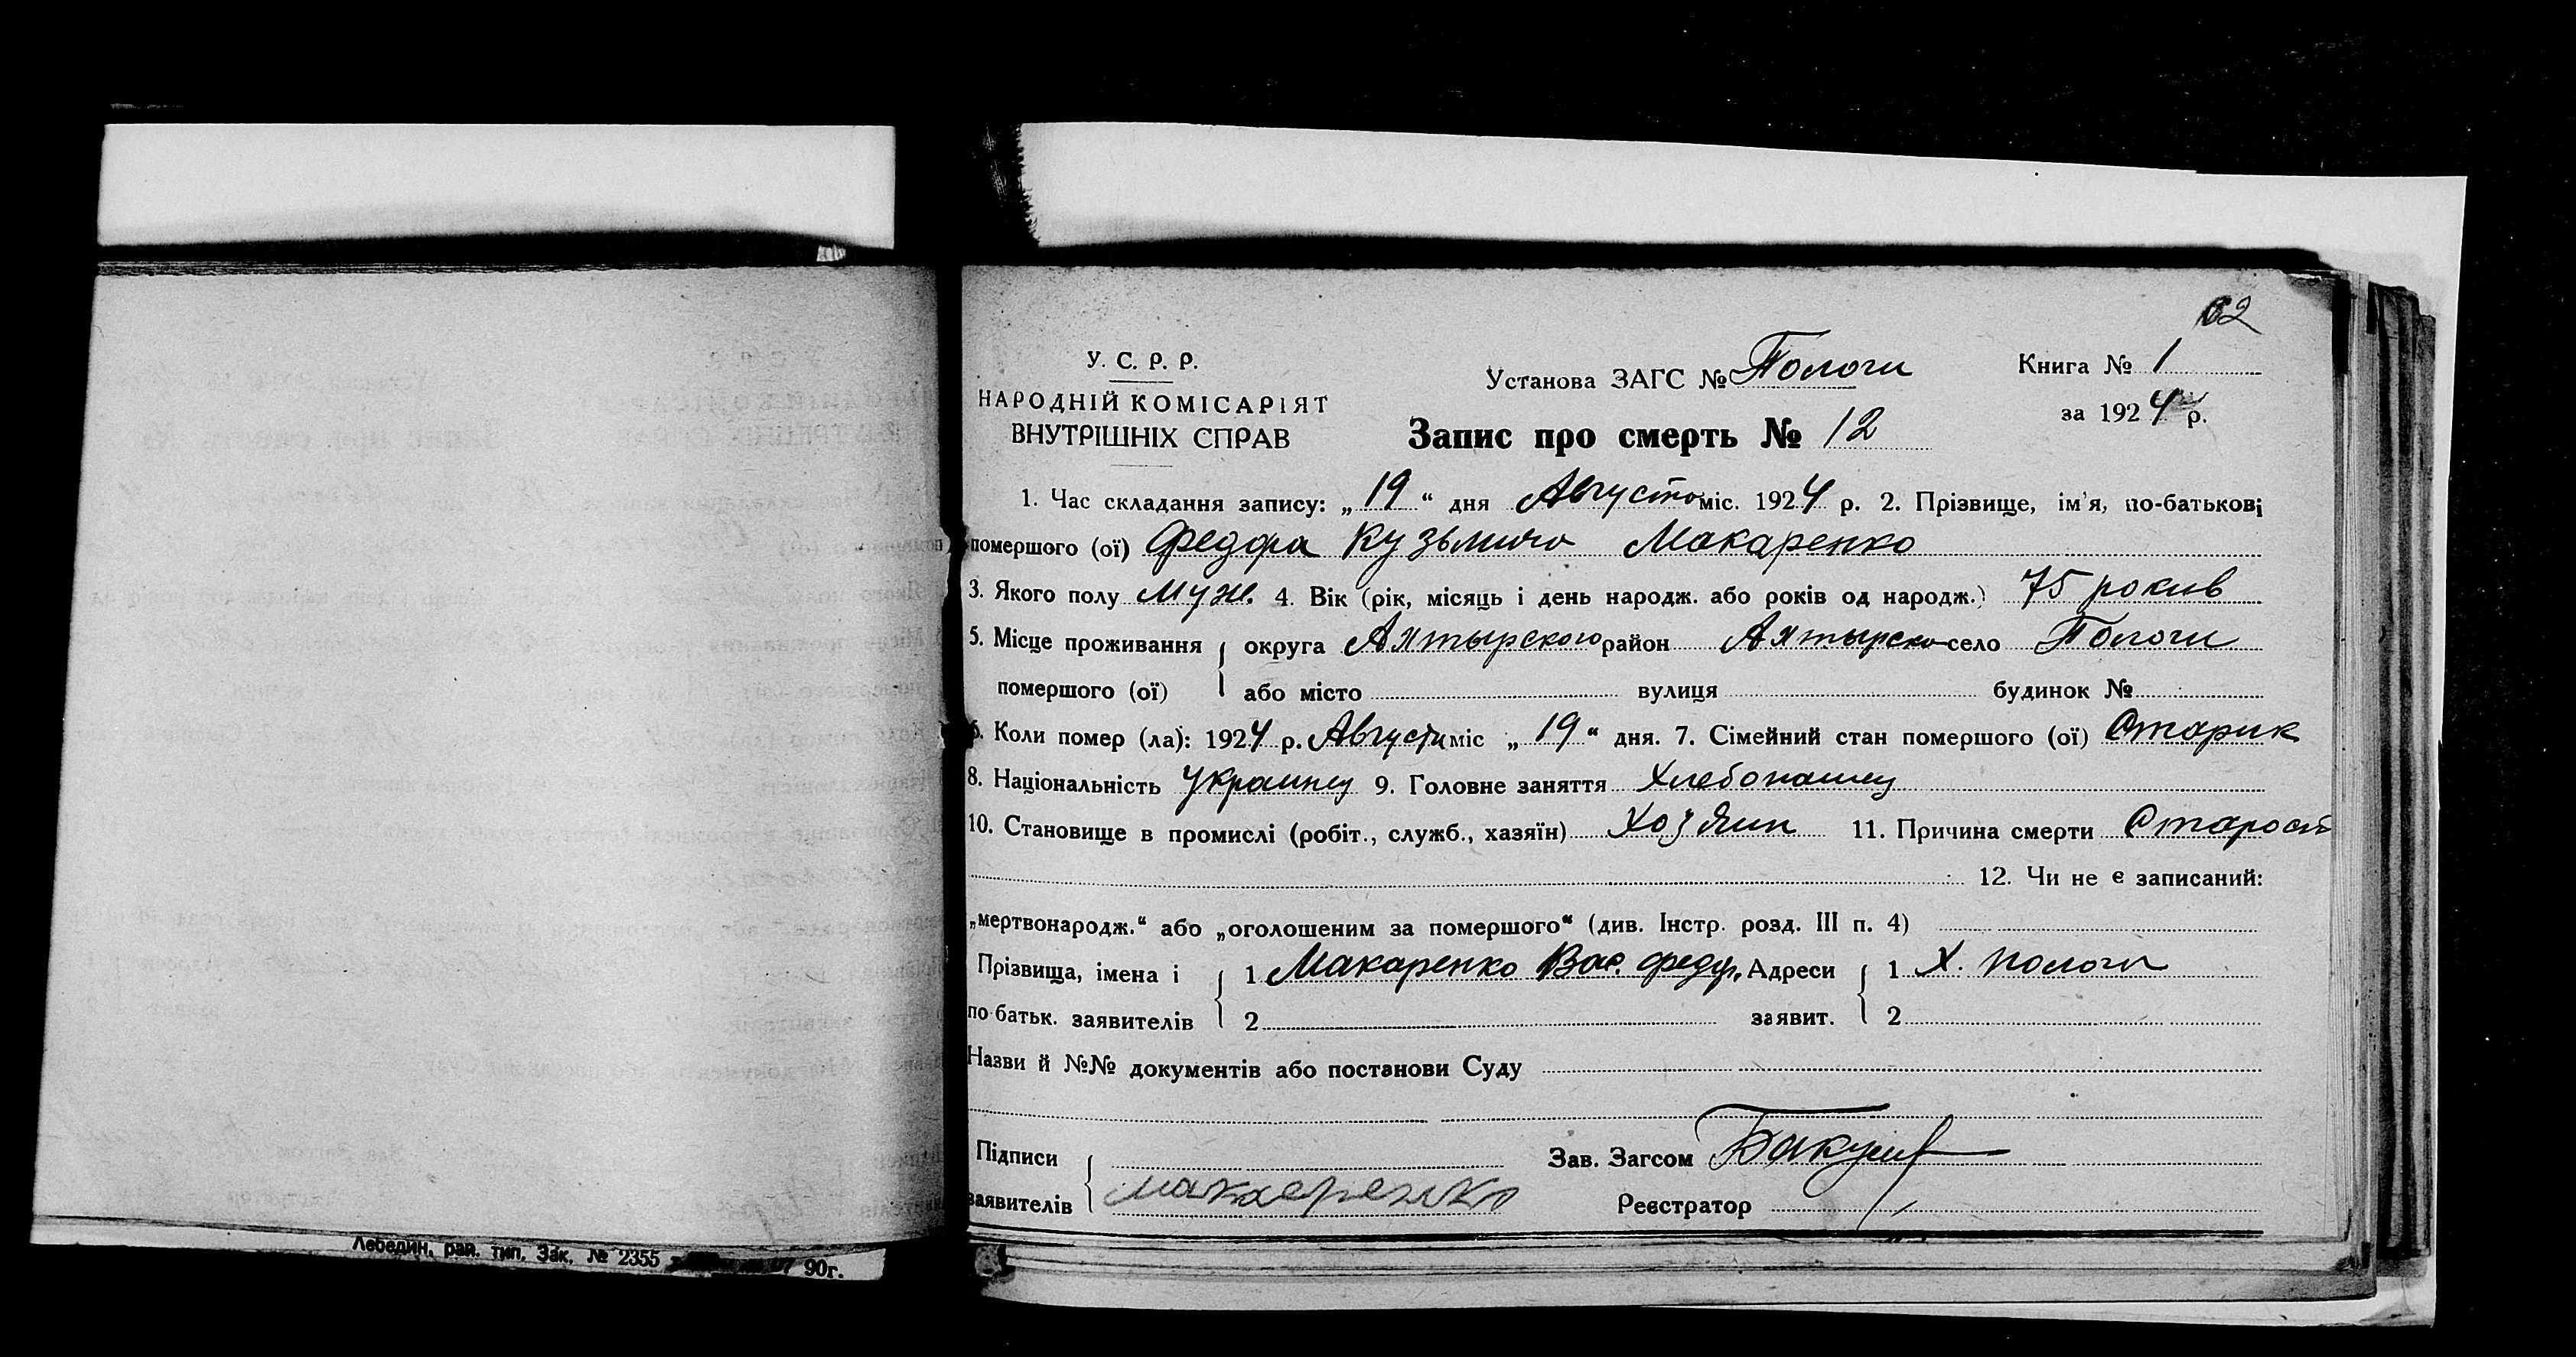 62
У. С. Р. Р.
НАРОДНІЙ КОМІСАРІЯТ
ВНУТРІШНІХ СПРАВ
Установа ЗАГС № Пологи
Книга № 1
за 1924 р.
Запис про смерть № 12
1. Час складання запису: „19“ дня Августа міс. 1924 р. 2. Прізвище, ім'я, по-батькові
помершого (ої) Федора Кузьмича Макаренко
3. Якого полу Муж. 4. Вік (рік, місяць і день народж. або років од народж.) 75 рокив
5. Місце проживання округа Ахтырского район Ахтырско село Пологи
помершого (ої) або місто вулиця будинок №
6. Коли помер (ла): 1924 р. Августа міс „19“ дня. 7. Сімейний стан помершого (ої) Старик
8. Національність Украинец 9. Головне заняття Хлебопашец
10. Становище в промислі (робіт., служб., хазяїн) Хозяин 11. Причина смерти Старост
12. Чи не є записаний:
„мертвонародж.“ або „оголошеним за помершого“ (див. Інстр. розд. III п. 4)
Прізвища, імена і 1 Макаренко Вас. Федор. Адреси 1 Х. Пологи
по батьк. заявителів 2 заявит. 2
Назви й №№ документів або постанови Суду
Підписи Зав. Загсом
заявителів Макаренко Реєстратор
Лебедин. рай. тип. Зак. № 2355 90г.